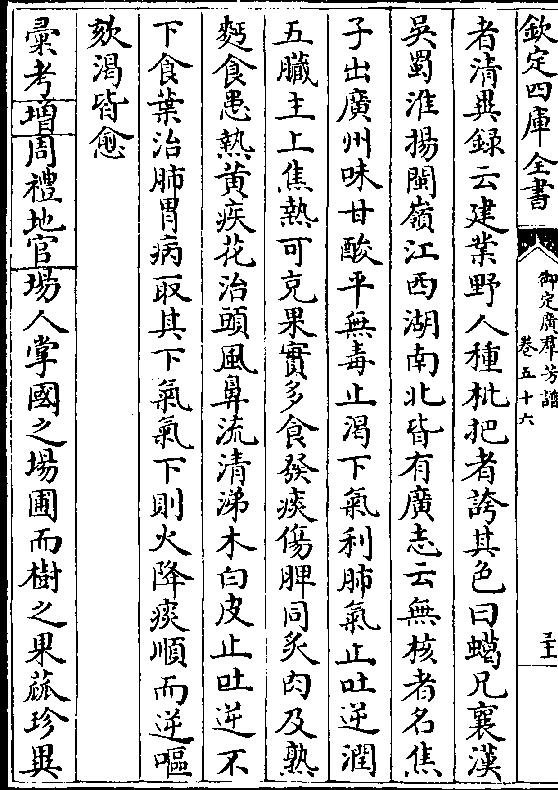 欽定四庫全書
御定廣羣芳譜
卷五十六
者清異録云建業野人種枇杷者誇其色曰蠟兄襄漢
吳蜀淮揚閩嶺江西湖南北皆有廣志云無核者名焦
子出廣州味甘酸平無毒止渴下氣利肺氣止吐逆潤
五臟主上焦熱可克果實多食發痰傷脾同炙肉及熟
麪食患熱黃疾花治頭風鼻流清涕木白皮止吐逆不
下食葉治肺胃病取其下氣氣下則火降痰順而逆嘔
欬渴皆愈
彙考增周禮地官場人掌國之場圃而樹之果蓏珍異